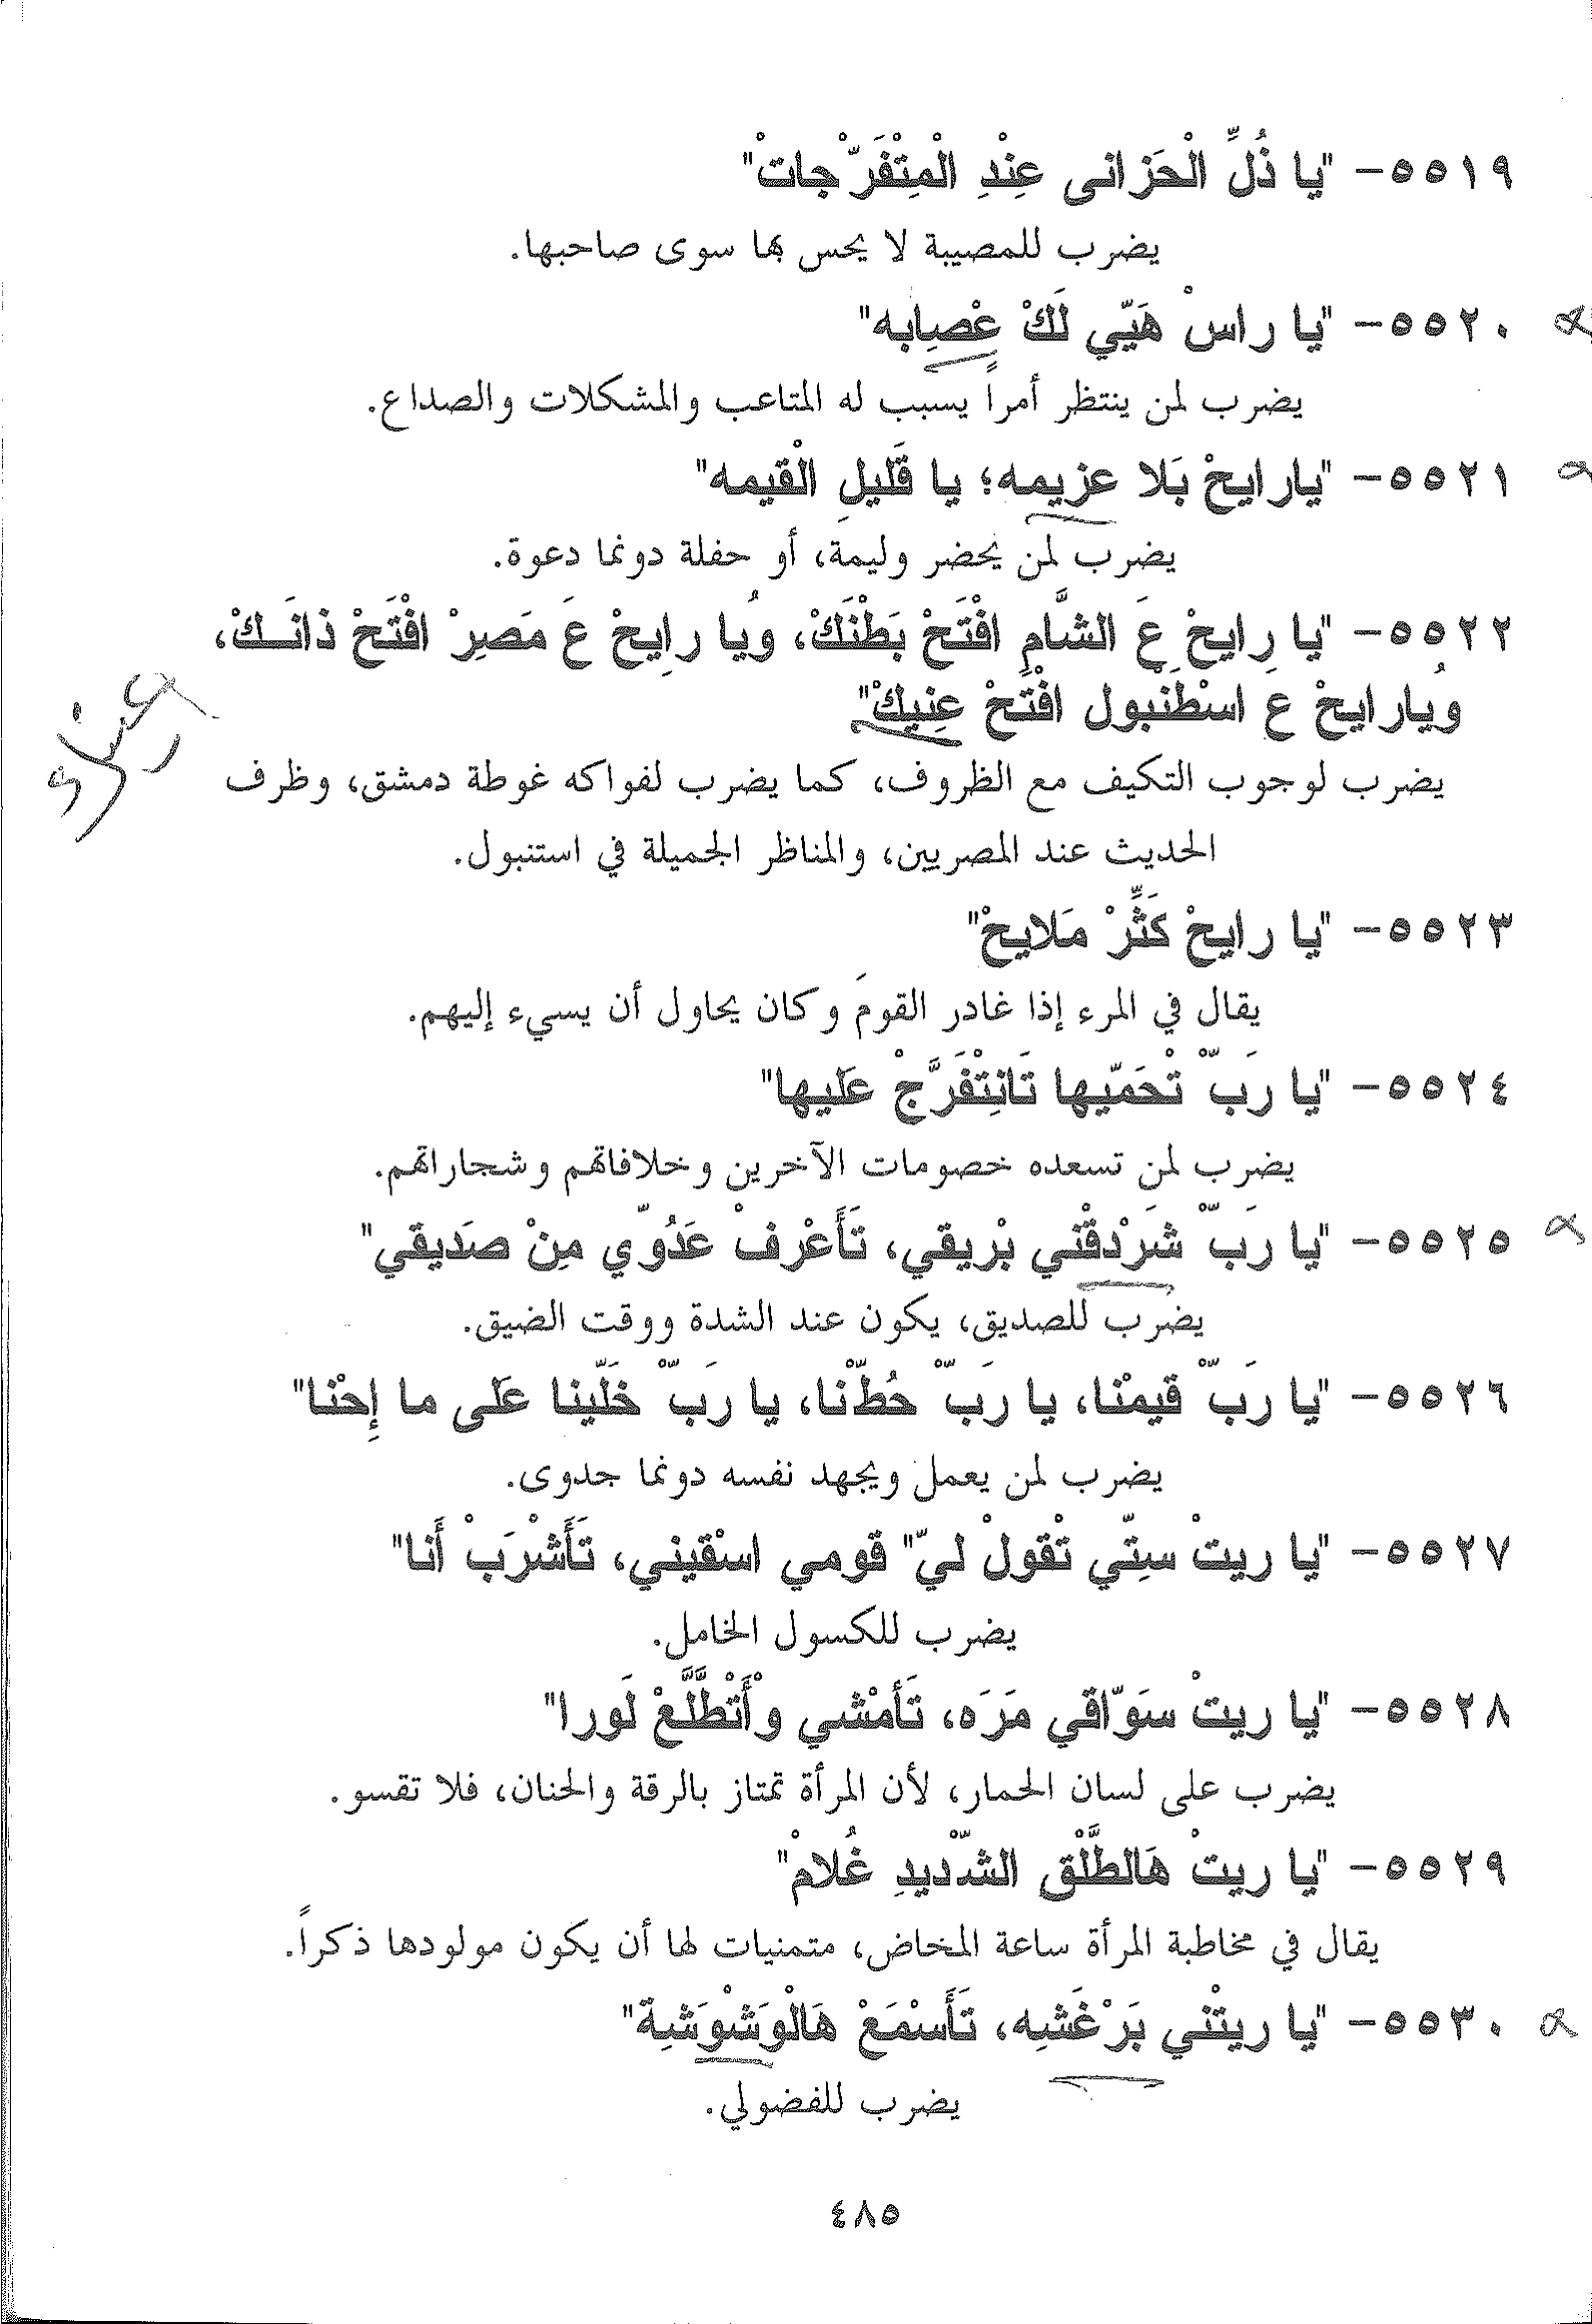 ٥٥١٩- "يا ذُلِّ الْحَزانى عِنْدِ الْمِتْفَرّْجاتْ"
يضرب للمصيبة لا يحس بها سوى صاحبها.
٥٥٢٠- "يا راسْ هَيّي لَكْ عْصِابِه"
يضرب لمن ينتظر أمراً يسبب له المتاعب والمشكلات والصداع.
٥٥٢١- "يارايحْ بَلا عزيمه؛ يا قَليلِ الْقيمه"
يضرب لمن يحضر وليمة، أو حفلة دونما دعوة.
٥٥٢٢- "يا رِايحْ عَ الشَّامِ افْتَحْ بَطْنَكْ، ويُا رِايحْ عَ مَصِرْ افْتَحْ ذانَـكْ،
ويُارايحْ عَ اسْطَنْبول افْتَحْ عِنِيكْ"
يضرب لوجوب التكيف مع الظروف، كما يضرب لفواكه غوطة دمشق، وظرف
الحديث عند المصريين، والمناظر الجميلة في استنبول.
٥٥٢٣- "يا رايحْ كَثِّرْ مَلايحْ"
يقال في المرء إذا غادر القومَ وكان يحاول أن يسيء إليهم.
٥٥٢٤- "يا رَبّْ تْحَمّيها تَانِتْفَرَّجْ عَليها"
يضرب لمن تسعده خصومات الآخرين وخلافاتهم وشجاراتهم.
٥٥٢٥- "يا رَبّْ شَرْدقْني بْريقي، تَأَعْرفْ عَدُوّي مِنْ صَديقي"
يضرب للصديق، يكون عند الشدة ووقت الضيق.
٥٥٢٦- "يا رَبّْ قيمْنا، يا رَبّْ حُطّْنا، يا رَبّْ خَلّينا عَلى ما إِحْنا"
يضرب لمن يعمل ويجهد نفسه دونما جدوى.
٥٥٢٧- "يا ريتْ سِتّي تْقولْ ليّ" قومي اسْقيني، تَأَشْرَبْ أَنا"
يضرب للكسول الخامل.
٥٥٢٨- "يا ريتْ سَوّاقي مَرَه، تَأمْشي وأَتْطَلَّعْ لَورا"
يضرب على لسان الحمار، لأن المرأة تمتاز بالرقة والحنان، فلا تقسو.
٥٥٢٩- "يا ريتْ هَالطَّلْقِ الشّْديدِ غُلامْ"
يقال في مخاطبة المرأة ساعة المخاض، متمنيات لها أن يكون مولودها ذكراً.
٥٥٣٠- "يا ريتْني بَرْغَشِه، تَأَسْمَعْ هَالْوَشْوَشِة"
يضرب للفضولي.
٤٨٥